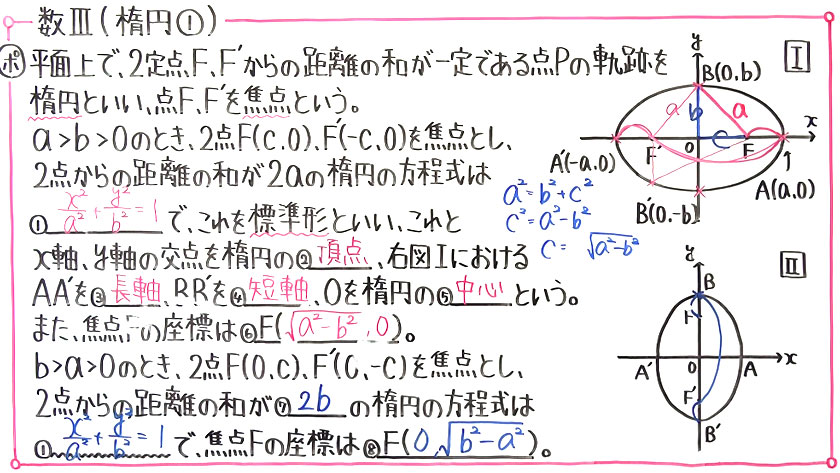 数Ⅲ(楕円①)
ポ 平面上で、2定点F、F'からの距離の和が一定である点Pの軌跡を
楕円といい、点F、F'を焦点という。
a>b>0のとき、2点F(c,0)、F'(-c,0)を焦点とし、
2点からの距離の和が2aの楕円の方程式は
① x²/a² + y²/b² = 1 で、これを標準形といい、これと
x軸、y軸の交点を楕円の②頂点、右図Ⅰにおける
AA'を③長軸、BB'を④短軸、Oを楕円の⑤中心という。
また、焦点Fの座標は⑥F(√a²-b²,0)。
b>a>0のとき、2点F(0,c)、F'(0,-c)を焦点とし、
2点からの距離の和が⑦2bの楕円の方程式は
① x²/a² + y²/b² = 1 で、焦点Fの座標は⑧F(0,√b²-a²)。
Ⅰ
y
B(0,b)
a
b
a
c
x
F'
O
F
A'(-a,0)
A(a,0)
B'(0,-b)
a²=b²+c²
c²=a²-b²
c=√a²-b²
Ⅱ
y
B
F
A'
O
A
x
F'
B'